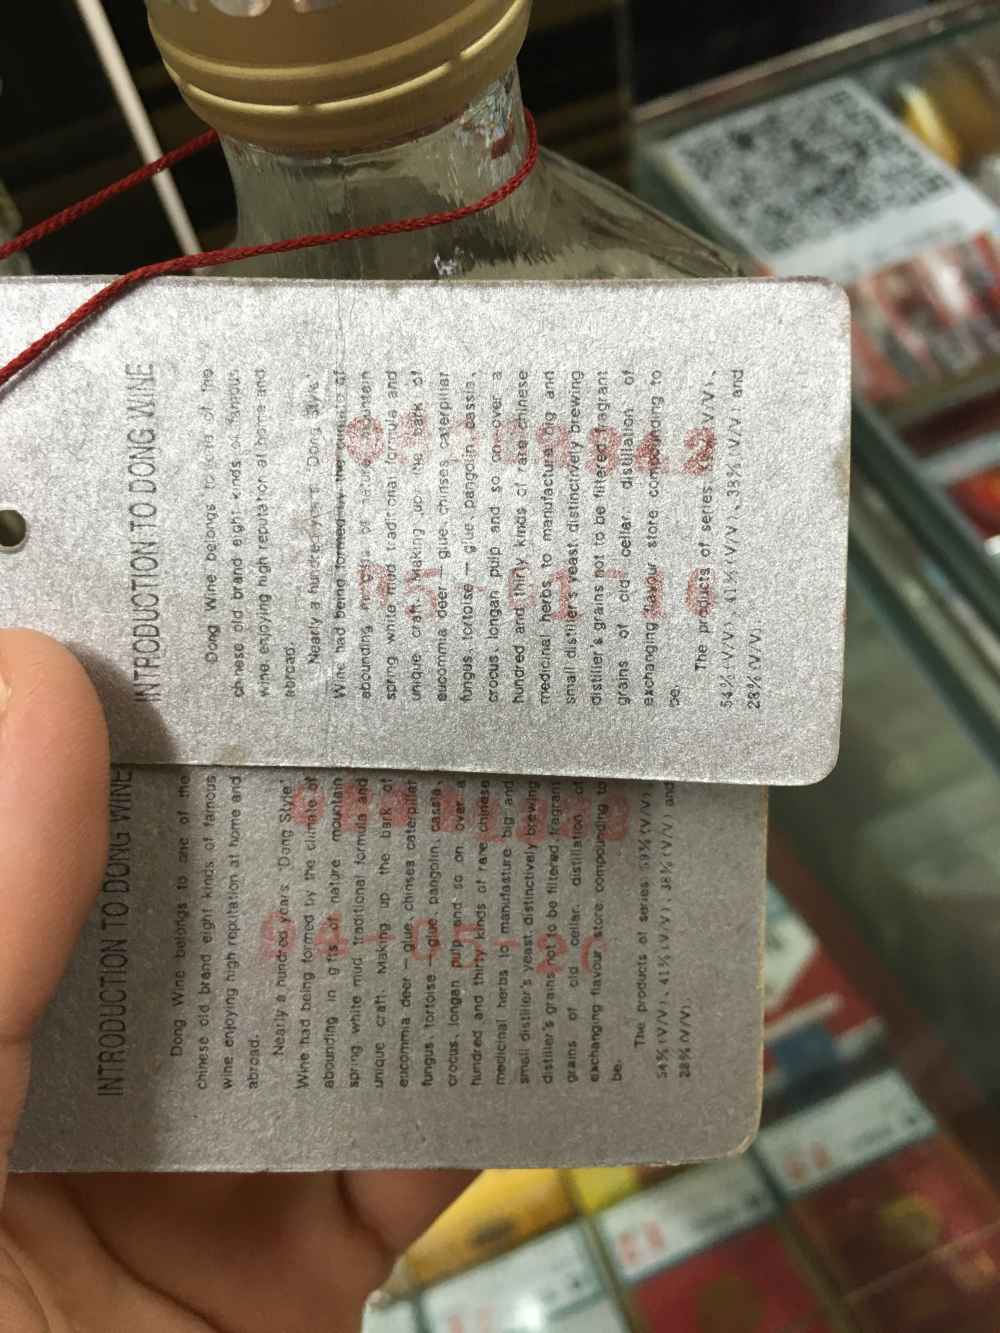 INTRODUCTION TO DONG WINE
Dong Wine belongs to one of the
chinese old brand eight kinds of famous
wine enjoying high reputation at home and
abroad.
Nearly a hundred years 'Dong Style'
Wine had being formed by the climate of
abounding in gifts of nature mountain
spring white mud traditional formula and
unique craft. Making up the bark of
eucommia deer — glue, chinses caterpillar
fungus, tortoise — glue, pangolin, cassia,
crocus, longan pulp and so on over a
hundred and thirty kinds of rare chinese
medicinal herbs to manufacture big and
small distiller's yeast distinctively brewing
distiller's grains not to be filtered fragrant
grains of old cellar, distillation of
exchanging flavour store compounding to
be.
The products of series: (V/V),
54% (V/V), 41% (V/V), 38% (V/V) and
28% (V/V).
INTRODUCTION TO DONG WINE
Dong Wine belongs to one of the
chinese old brand eight kinds of famous
wine enjoying high reputation at home and
abroad.
Nearly a hundred years, 'Dong Style'
Wine had being formed by the climate of
abounding in gifts of nature mountain
spring white mud traditional formula and
unique craft. Making up the bark of
eucommia deer — glue, chinses caterpillar
fungus, tortoise — glue, pangolin, cassia,
crocus, longan pulp and so on over a
hundred and thirty kinds of rare chinese
medicinal herbs to manufacture big and
small distiller's yeast distinctively brewing
distiller's grains not to be filtered, fragrant
grains of old cellar, distillation of
exchanging flavour store compounding to
be.
The products of series: 59% (V/V),
54% (V/V), 41% (V/V), 38% (V/V) and
28% (V/V).